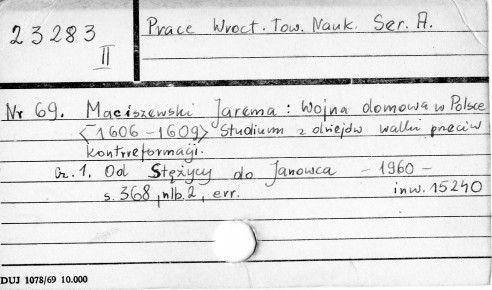 23283
II
Prace Wrocł. Tow. Nauk. Ser. A.
Nr 69. Maciszewski Jarema: Wojna domowa w Polsce
<1606-1609> Studium z dziejów walki przeciw
kontrreformacji.
Cz. 1. Od Stężycy do Janowca - 1960 -
s. 368, nlb. 2, err. inw. 15240
DUJ 1078/69 10.000